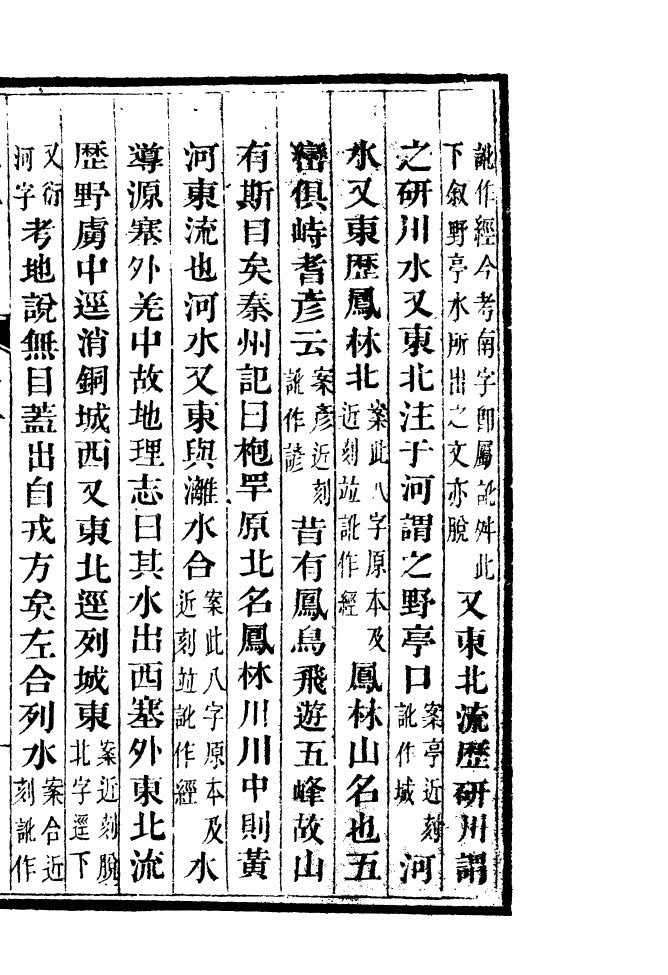 訛作經今考南字卽屬訛舛此下叙野亭水所出之文亦脫又東北流歷研川謂
之研川水又東北注于河謂之野亭口案亭近刻訛作城河
水又東歷鳳林北案此八字原本及近刻竝訛作經鳳林山名也五
巒俱峙耆彥云案彥近刻訛作諺昔有鳳鳥飛遊五峰故山
有斯目矣秦州記曰枹罕原北名鳳林川川中則黃
河東流也河水又東與灕水合案此八字原本及近刻竝訛作經水
導源塞外羌中故地理志曰其水出西塞外東北流
歷野虜中逕消銅城西又東北逕列城東案近刻脫北字逕下
又衍河字考地說無目蓋出自戎方矣左合列水案合近刻訛作